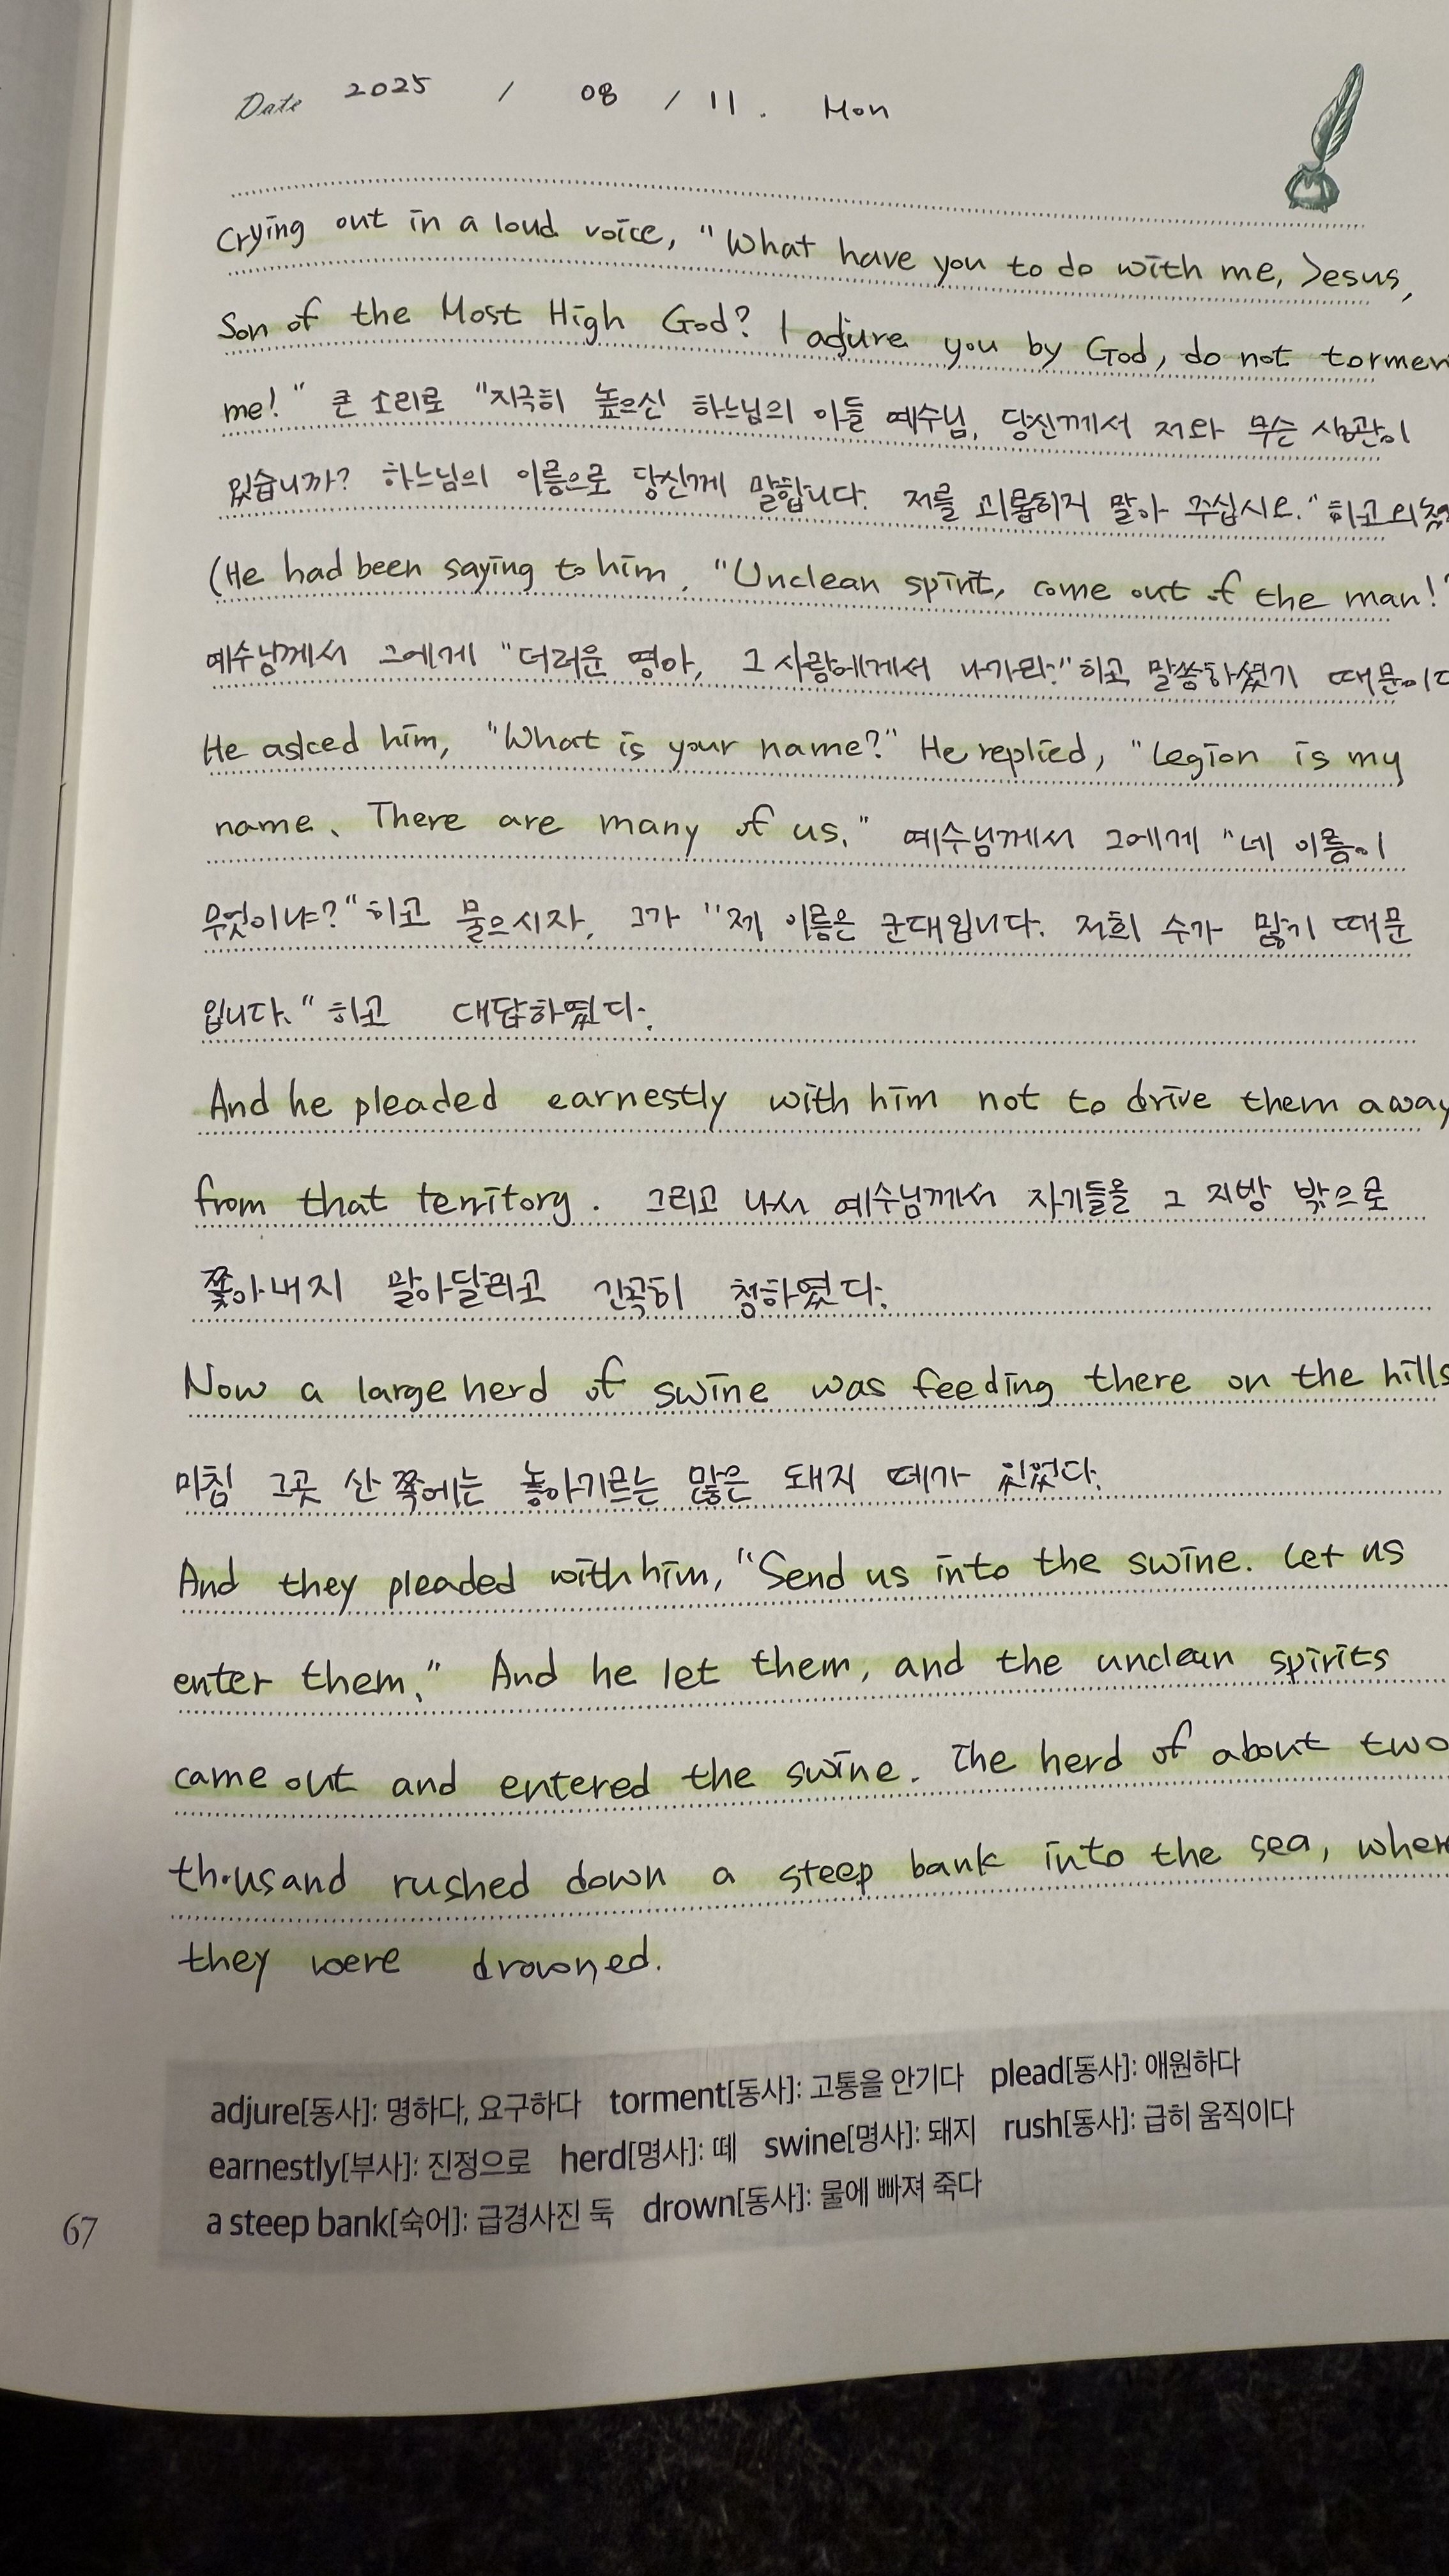 Date 2025 / 08 / 11. Mon
Crying out in a loud voice, "What have you to do with me, Jesus,
Son of the Most High God? I adjure you by God, do not tormen
me!" 큰 소리로 "지극히 높으신 하느님의 아들 예수님, 당신께서 저와 무슨 상관이
있습니까? 하느님의 이름으로 당신께 말합니다. 저를 괴롭히지 말아 주십시오." 하고 외쳤
(He had been saying to him, "Unclean spirit, come out of the man!"
예수님께서 그에게 "더러운 영아, 그 사람에게서 나가라." 하고 말씀하셨기 때문이다
He asked him, "What is your name?" He replied, "Legion is my
name. There are many of us." 예수님께서 그에게 "네 이름이
무엇이냐?" 하고 물으시자, 그가 "제 이름은 군대입니다. 저희 수가 많기 때문
입니다." 하고 대답하였다.
And he pleaded earnestly with him not to drive them away
from that territory. 그리고 나서 예수님께서 자기들을 그 지방 밖으로
쫓아내지 말아달라고 간곡히 청하였다.
Now a large herd of swine was feeding there on the hills
마침 그곳 산 쪽에는 놓아기르는 많은 돼지 떼가 있었다.
And they pleaded with him, "Send us into the swine. Let us
enter them." And he let them, and the unclean spirits
came out and entered the swine. The herd of about two
thousand rushed down a steep bank into the sea, wher
they were drowned.
adjure[동사]: 명하다, 요구하다 torment[동사]: 고통을 안기다 plead[동사]: 애원하다
earnestly[부사]: 진정으로 herd[명사]: 떼 swine[명사]: 돼지 rush[동사]: 급히 움직이다
a steep bank[숙어]: 급경사진 둑 drown[동사]: 물에 빠져 죽다
67